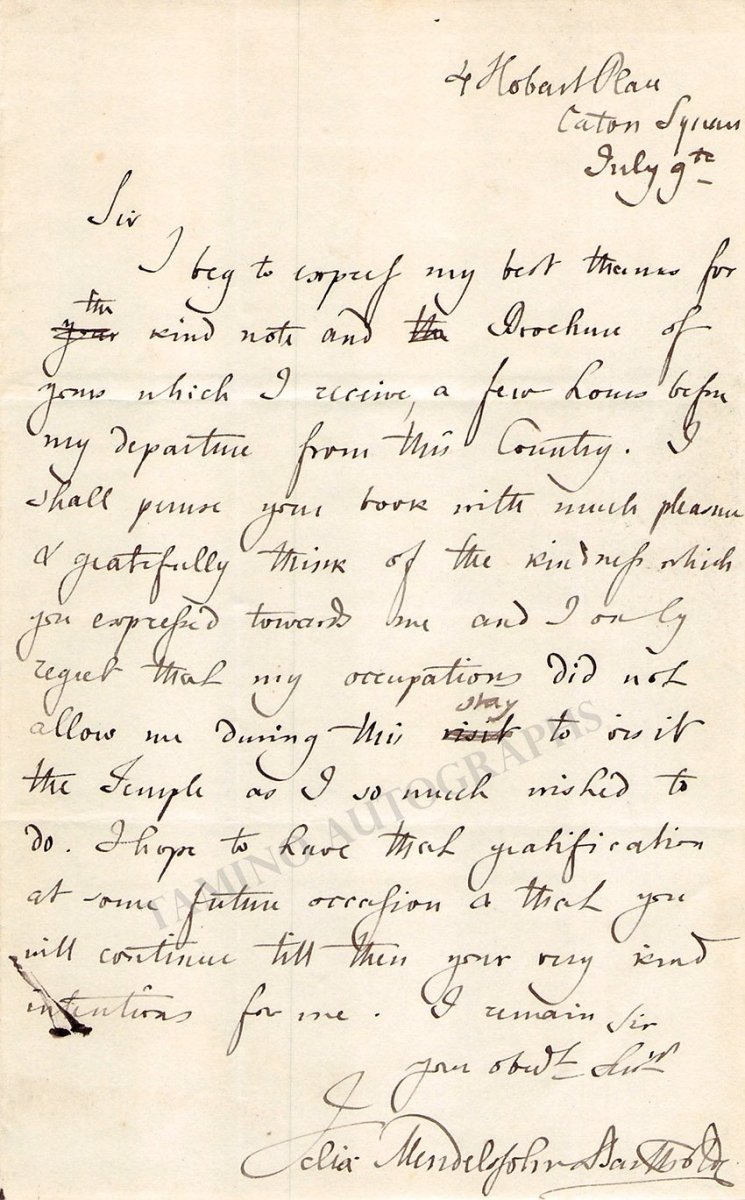 4 Hobart Place
Eaton Square
July 9th
Sir
I beg to express my best thanks for
the
your kind note and the Brochure of
yours which I receive, a few hours before
my departure from this Country. I
shall peruse your book with much pleasure
& gratefully think of the kindness which
you expressed towards me and I only
regret that my occupations did not
stay
allow me during this visit to visit
the Temple as I so much wished to
do. I hope to have that gratification
at some future occasion & that you
will continue till then your very kind
intentions for me. I remain Sir
your obedt Servt
Felix Mendelssohn Bartholdy
TAMINO AUTOGRAPHS